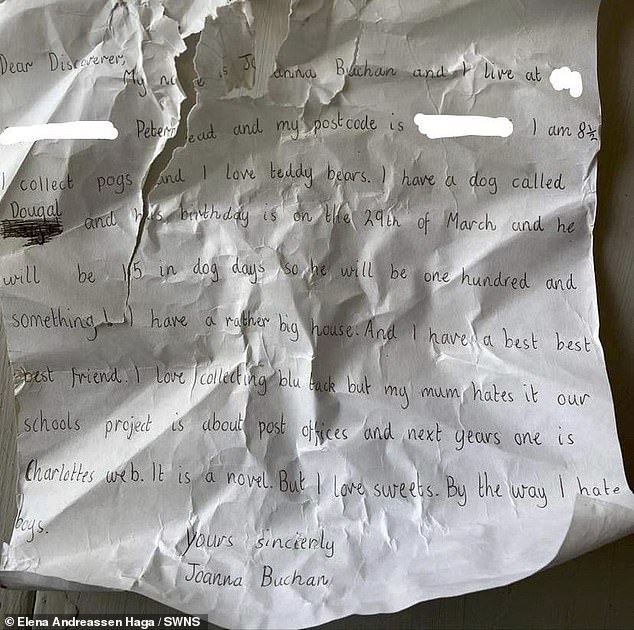 Dear Discoverer,
My name is Joanna Buchan and I live at
Peterhead and my postcode is I am 8½
I collect pogs and I love teddy bears. I have a dog called
Dougal and his birthday is on the 29th of March and he
will be 15 in dog days so he will be one hundred and
something! I have a rather big house. And I have a best best
best friend. I love collecting blu tack but my mum hates it our
schools project is about post offices and next years one is
Charlottes web. It is a novel. But I love sweets. By the way I hate
boys.
Yours sincierly
Joanna Buchan
© Elena Andreassen Haga / SWNS